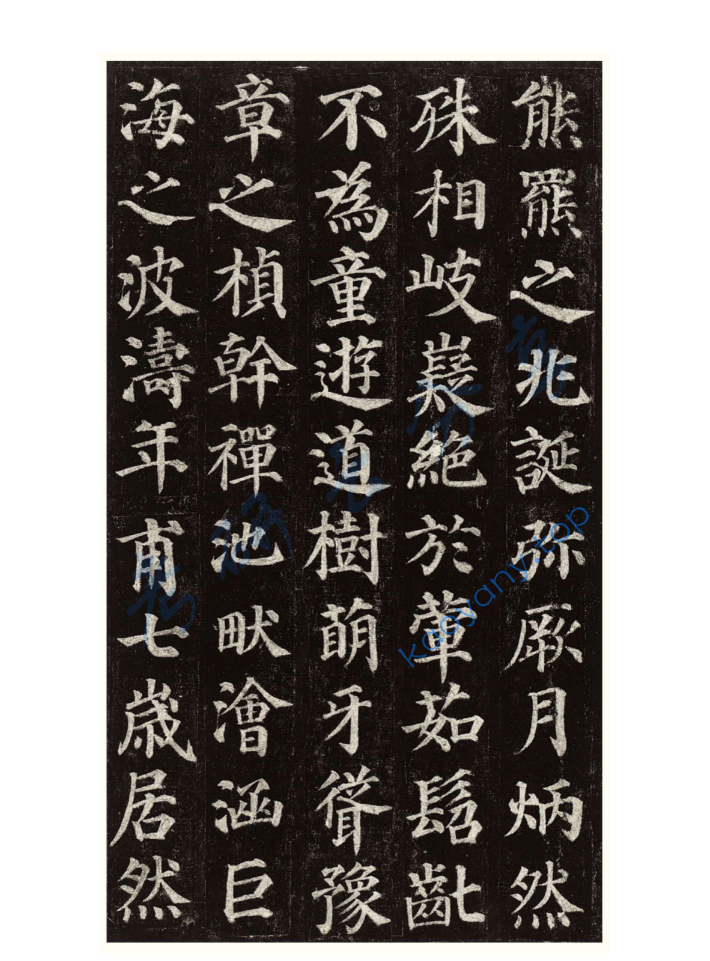 熊羆之兆誕弥厥月炳然
殊相岐嶷絶於葷茹髫齔
不為童遊道樹萌牙聳豫
章之楨幹禪池畎澮涵巨
海之波濤年甫七歳居然
kaoyany.top